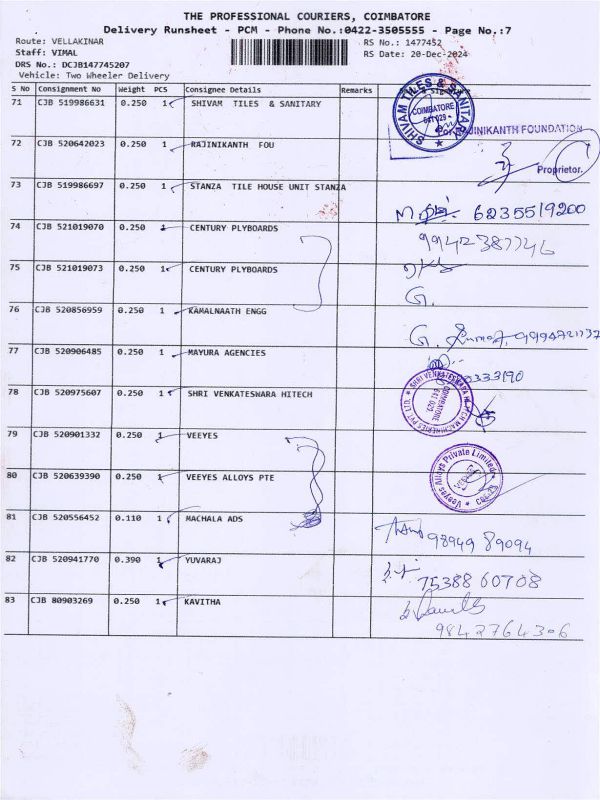 THE PROFESSIONAL COURIERS, COIMBATORE
Delivery Runsheet - PCM - Phone No.:0422-3505555 - Page No.:7
Route: VELLAKINAR RS No.: 1477452
Staff: VIMAL RS Date: 20-Dec-2024
DRS No.: DCJB147745207
Vehicle: Two Wheeler Delivery
S No Consignment No Weight PCS Consignee Details Remarks
71 CJB 519986631 0.250 1 SHIVAM TILES & SANITARY
SHIVAM TILES & SANITARY
COIMBATORE
641 029
RAJINIKANTH FOUNDATION
72 CJB 520642023 0.250 1 RAJINIKANTH FOU
Proprietor.
73 CJB 519986697 0.250 1 STANZA TILE HOUSE UNIT STANZA
6235519200
74 CJB 521019070 0.250 1 CENTURY PLYBOARDS
9942387746
75 CJB 521019073 0.250 1 CENTURY PLYBOARDS
G.
76 CJB 520856959 0.250 1 KAMALNAATH ENGG
G.
77 CJB 520906485 0.250 1 MAYURA AGENCIES
78 CJB 520975607 0.250 1 SHRI VENKATESWARA HITECH
SHRI VENKATESWARA HI-TECH MACHINERIES PVT LTD.
COIMBATORE
641 029
79 CJB 520901332 0.250 1 VEEYES
80 CJB 520639390 0.250 1 VEEYES ALLOYS PTE
Veeyes Alloys Private Limited
81 CJB 520556452 0.110 1 MACHALA ADS
98949 89094
82 CJB 520941770 0.390 1 YUVARAJ
75388 60708
83 CJB 80903269 0.250 1 KAVITHA
9842764306